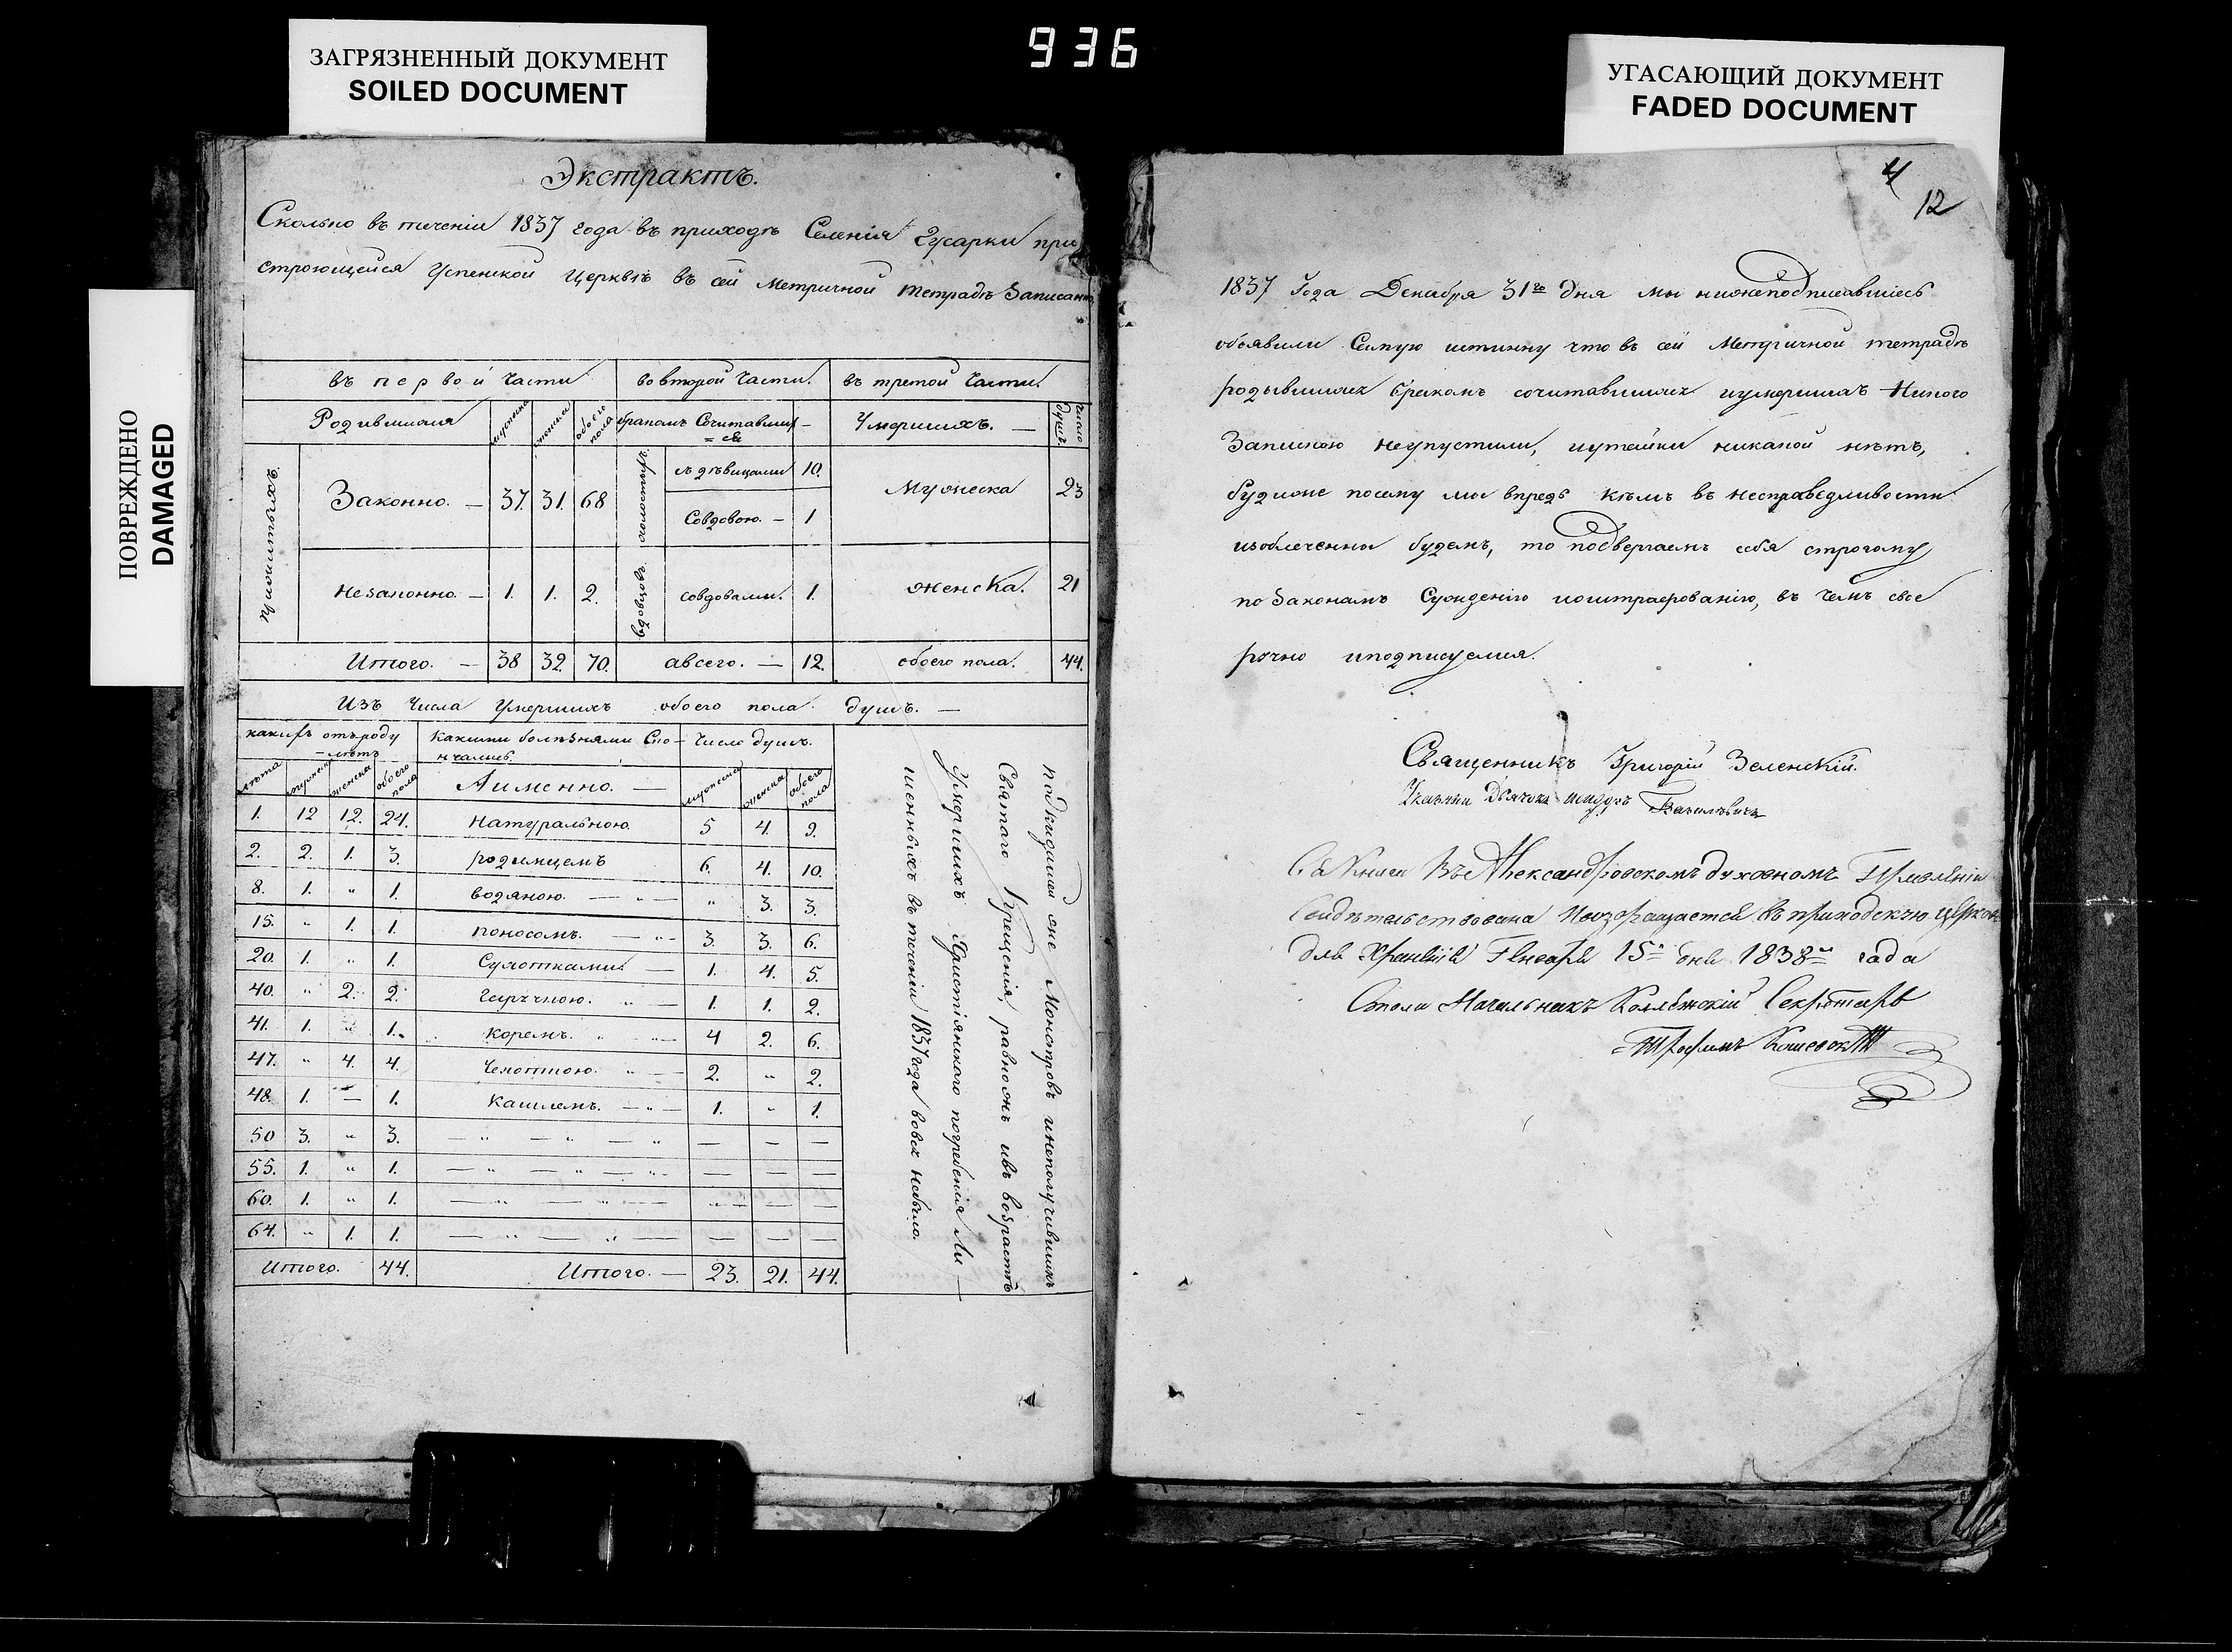 936
ЗАГРЯЗНЕННЫЙ ДОКУМЕНТ
SOILED DOCUMENT
УГАСАЮЩИЙ ДОКУМЕНТ
FADED DOCUMENT
ПОВРЕЖДЕНО
DAMAGED
Экстрактъ.
Сколько въ теченіи 1837 года въ приходѣ Селенія Гусарки при
строющейся Успенской Церквѣ въ сей Метричной тетрадѣ Записанно
въ первой части во второй части. въ третой части.
Родившихся мужеска женска обоего пола бракомъ Сочитавших= ся Умершихъ. — число душъ.
Законно. — 37. 31. 68 холостыхъ съ дѣвицами 10. Мужеска 23
Совдовою. — 1
Незаконно. — 1. 1. 2. вдовцовъ совдовами. 1. женска. 21
Итого. — 38 32. 70. авсего. — 12. обоего пола. 44.
Изъ числа Умершихъ обоего пола душъ. —
какихъ отъроду лѣтъ какими болѣзнями Ско= нчались. Число душъ.
лѣта мужеска женска обоего пола Аименно. — мужеска женска обоего пола
1. 12 12. 24. натуральною. 5 4. 9.
2. 2. 1. 3. родимцемъ 6. 4. 10.
8. 1. " 1. водяною. — " — " 3. 3.
15. " 1. 1. поносомъ. — " - 3. 3. 6.
20. 1. " 1. Сухотками. — 1. 4. 5.
40. " 2. 2. " — 1. 1. 2.
41. 1. " 1. коремъ. " — 4 2. 6.
47. " 4. 4. Чехоткою. " — 2. " 2.
48. 1. — 1. Кашлемъ. — " — 1. " 1.
50 3. " 3. — " — " — " — — —
55. 1. " 1. — " — " — " — — —
60. 1. " 1. — " — " — " — — —
64. " 1. 1. — " — " — — — —
Итого. 44. Итого. — 23. 21. 44.
Подкидышей же Монстровъ инеполучившихъ
Святаго Крещенія, равножъ ивъ возрастѣ
Умершихъ Христіянскаго погребенія Ли —
шенныхъ въ теченіи 1837 года вовсе небыло.
4
12
1837 Года Декабря 31го дня мы нижеподписавшіесь
объявили Самую истинну что въ сей Метричной тетрадѣ
родывшихся бракомъ сочитавшихся иумершихъ Никого
Запискою неупустили, иутайки никакой нѣтъ,
будиже посему мы впредь кѣмъ въ несправедливости
изобличенни будемъ, то подвергаемъ себя строгому
по Законамъ Сужденію иоштрафованію, въ чемъ свое
ручно иподписуемся.
Священникъ Григорій Зеленскій.
Дьячокъ
Сія Книга Въ Александровскомъ духовномъ Правленіи
Свидѣтельствована Ивозвращается въ приходскую церковь
для Храненія Генваря 15 дня 1838го года
Стола Начальникъ Коллежскій Секретарь
Трофимъ